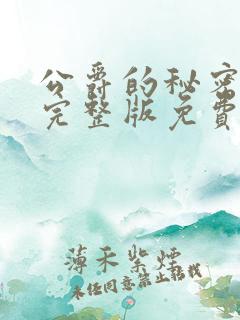 公爵的秘密
完整版免费
薄禾紫烟
未经同意禁止转载